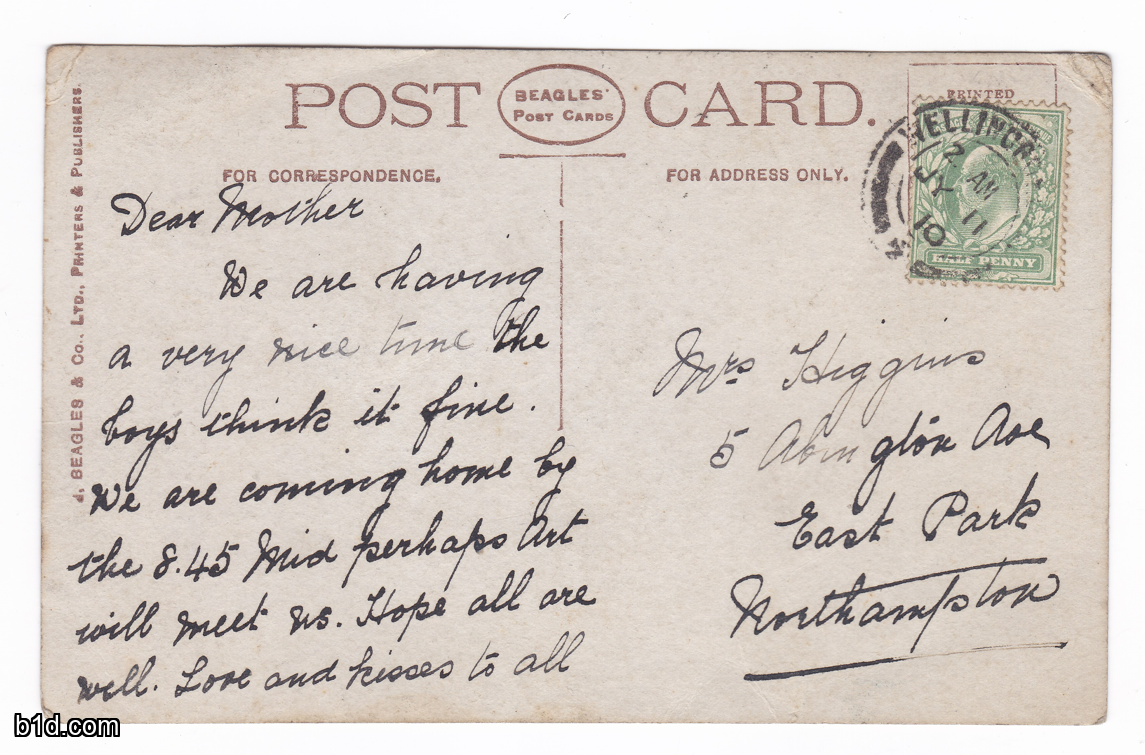 POST CARD.
BEAGLES'
POST CARDS
PRINTED
FOR CORRESPONDENCE.
FOR ADDRESS ONLY.
J. BEAGLES & Co., LTD., PRINTERS & PUBLISHERS.
Dear Mother
We are having
a very nice time the
boys think it fine.
We are coming home by
the 8.45 Mid perhaps Art
will meet us. Hope all are
well. Love and kisses to all
JY 2
10
HALF PENNY
Mrs Higgins
5 Abington Ave
East Park
Northampton
b1d.com